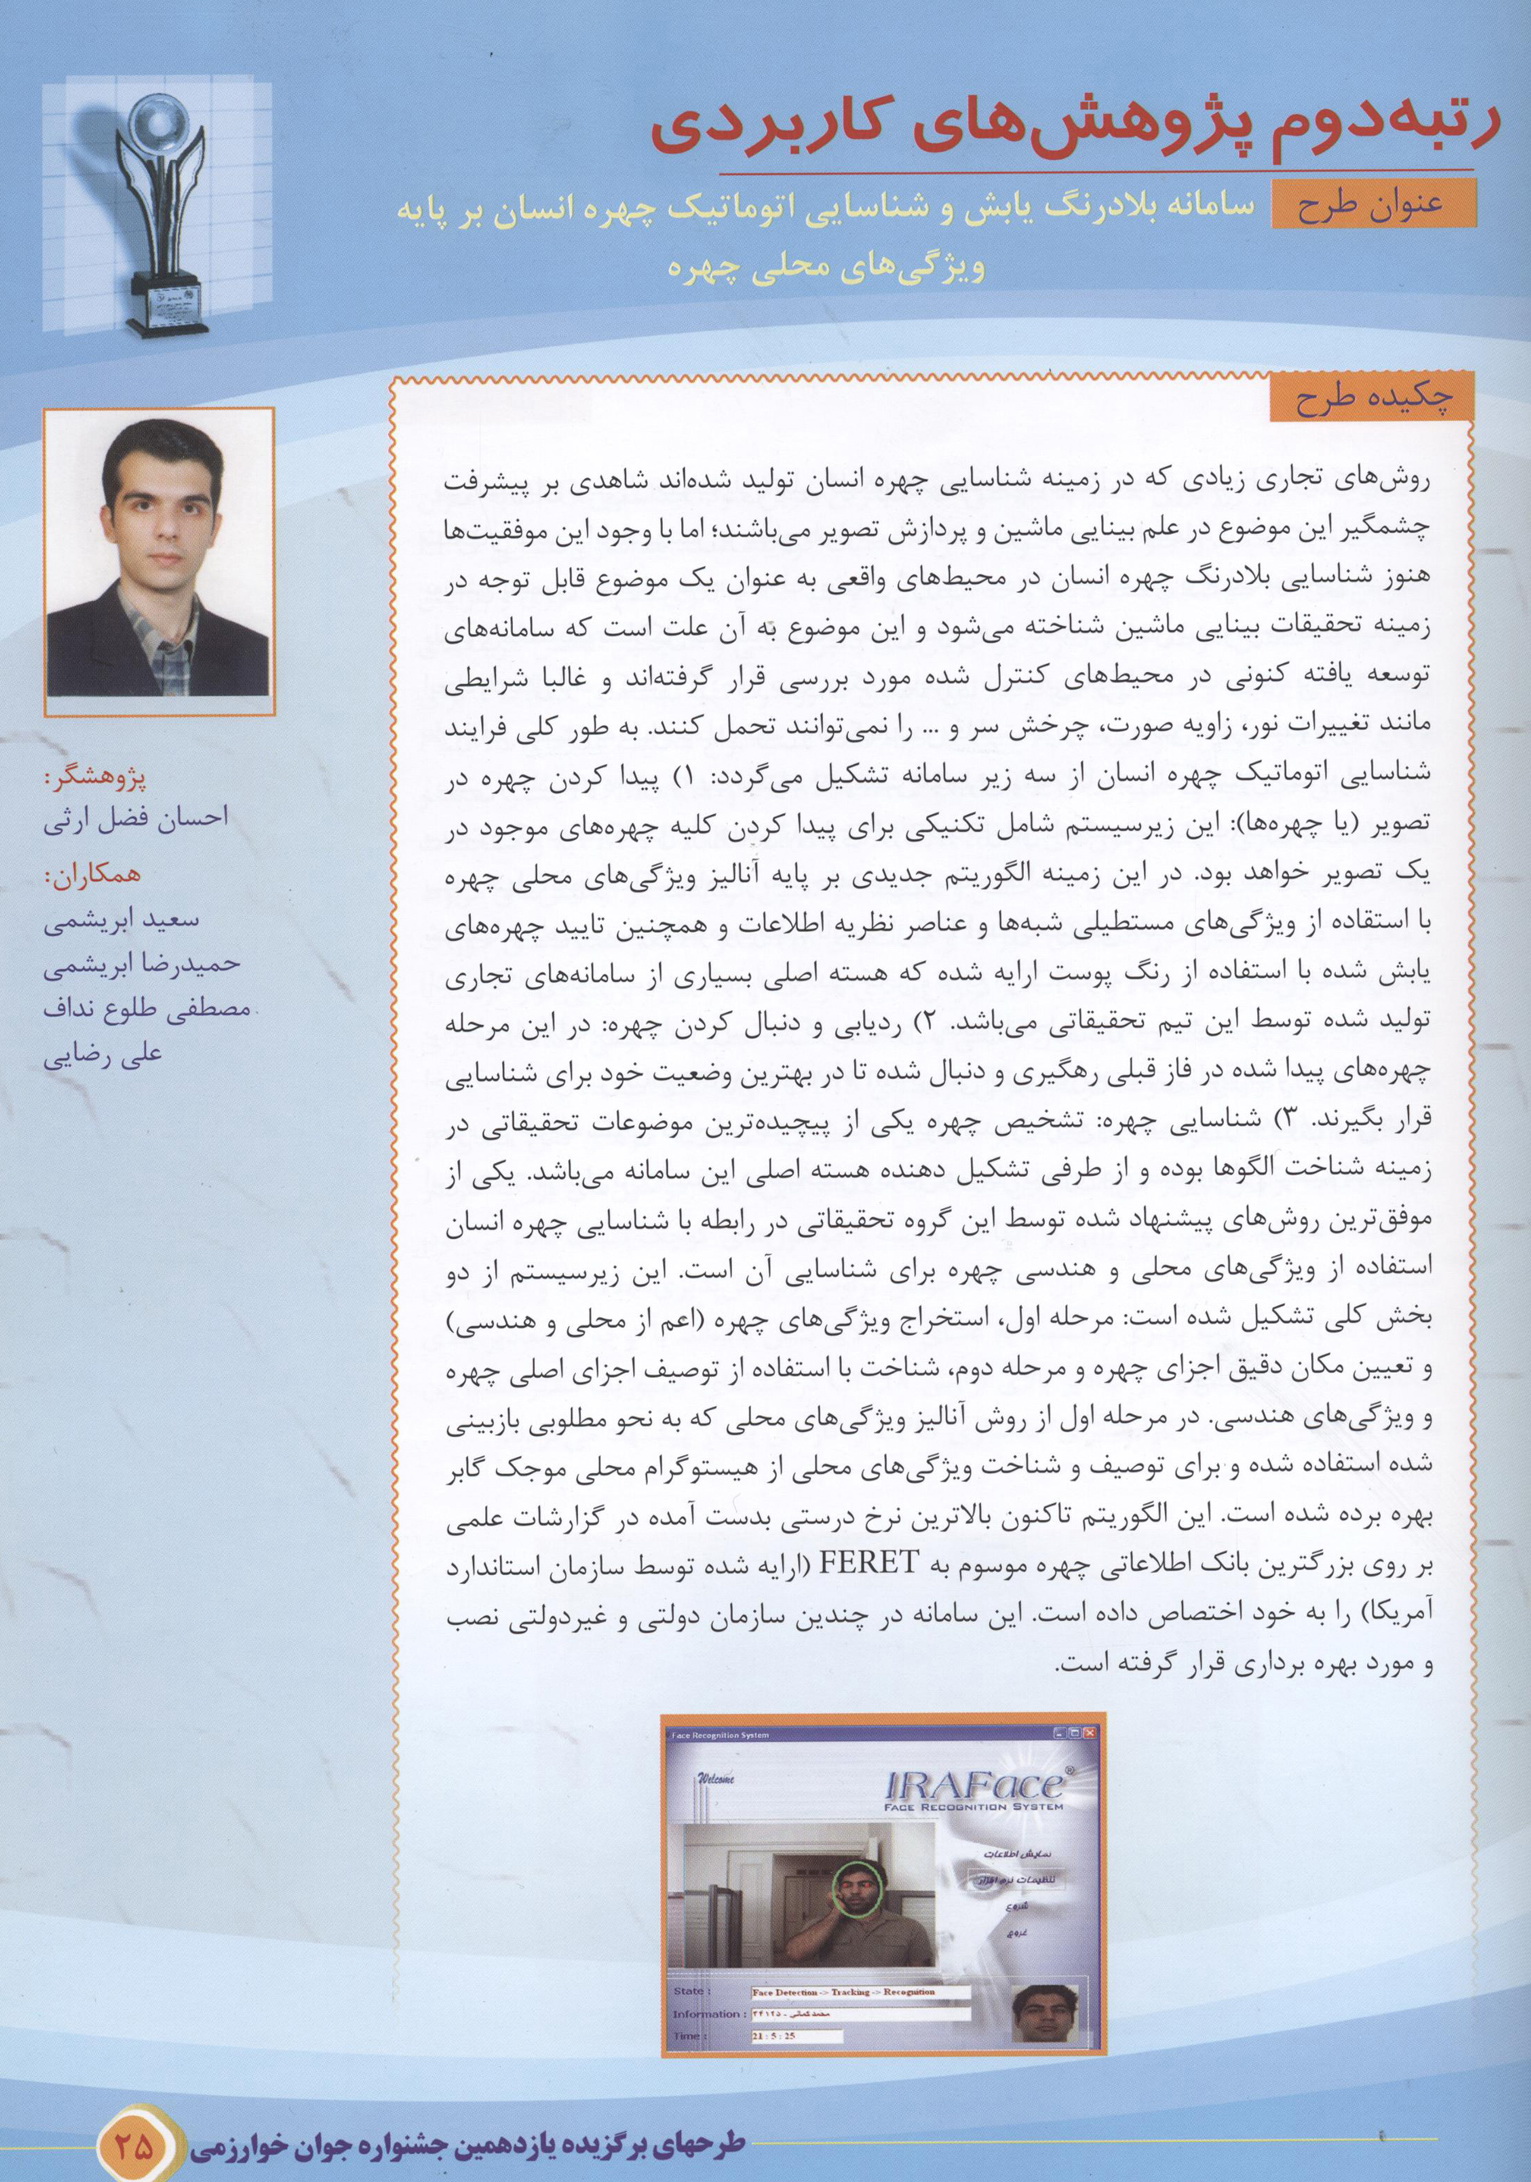 رتبه‌دوم پژوهش‌های کاربردی
عنوان طرح
سامانه بلادرنگ یابش و شناسایی اتوماتیک چهره انسان بر پایه
ویژگی‌های محلی چهره
چکیده طرح
روش‌های تجاری زیادی که در زمینه شناسایی چهره انسان تولید شده‌اند شاهدی بر پیشرفت
چشمگیر این موضوع در علم بینایی ماشین و پردازش تصویر می‌باشند؛ اما با وجود این موفقیت‌ها
هنوز شناسایی بلادرنگ چهره انسان در محیط‌های واقعی به عنوان یک موضوع قابل توجه در
زمینه تحقیقات بینایی ماشین شناخته می‌شود و این موضوع به آن علت است که سامانه‌های
توسعه یافته کنونی در محیط‌های کنترل شده مورد بررسی قرار گرفته‌اند و غالبا شرایطی
مانند تغییرات نور، زاویه صورت، چرخش سر و ... را نمی‌توانند تحمل کنند. به طور کلی فرایند
شناسایی اتوماتیک چهره انسان از سه زیر سامانه تشکیل می‌گردد: ۱) پیدا کردن چهره در
تصویر (یا چهره‌ها): این زیرسیستم شامل تکنیکی برای پیدا کردن کلیه چهره‌های موجود در
یک تصویر خواهد بود. در این زمینه الگوریتم جدیدی بر پایه آنالیز ویژگی‌های محلی چهره
با استفاده از ویژگی‌های مستطیلی شبه‌ها و عناصر نظریه اطلاعات و همچنین تایید چهره‌های
یابش شده با استفاده از رنگ پوست ارایه شده که هسته اصلی بسیاری از سامانه‌های تجاری
تولید شده توسط این تیم تحقیقاتی می‌باشد. ۲) ردیابی و دنبال کردن چهره: در این مرحله
چهره‌های پیدا شده در فاز قبلی رهگیری و دنبال شده تا در بهترین وضعیت خود برای شناسایی
قرار بگیرند. ۳) شناسایی چهره: تشخیص چهره یکی از پیچیده‌ترین موضوعات تحقیقاتی در
زمینه شناخت الگوها بوده و از طرفی تشکیل دهنده هسته اصلی این سامانه می‌باشد. یکی از
موفق‌ترین روش‌های پیشنهاد شده توسط این گروه تحقیقاتی در رابطه با شناسایی چهره انسان
استفاده از ویژگی‌های محلی و هندسی چهره برای شناسایی آن است. این زیرسیستم از دو
بخش کلی تشکیل شده است: مرحله اول، استخراج ویژگی‌های چهره (اعم از محلی و هندسی)
و تعیین مکان دقیق اجزای چهره و مرحله دوم، شناخت با استفاده از توصیف اجزای اصلی چهره
و ویژگی‌های هندسی. در مرحله اول از روش آنالیز ویژگی‌های محلی که به نحو مطلوبی بازبینی
شده استفاده شده و برای توصیف و شناخت ویژگی‌های محلی از هیستوگرام محلی موجک گابر
بهره برده شده است. این الگوریتم تاکنون بالاترین نرخ درستی بدست آمده در گزارشات علمی
بر روی بزرگترین بانک اطلاعاتی چهره موسوم به FERET (ارایه شده توسط سازمان استاندارد
آمریکا) را به خود اختصاص داده است. این سامانه در چندین سازمان دولتی و غیردولتی نصب
و مورد بهره برداری قرار گرفته است.
پژوهشگر:
احسان فضل ارثی
همکاران:
سعید ابریشمی
حمیدرضا ابریشمی
مصطفی طلوع نداف
علی رضایی
Face Recognition System
Welcome
IRAFace®
FACE RECOGNITION SYSTEM
نمایش اطلاعات
تنظیمات نرم افزار
شروع
خروج
State :
Face Detection -> Tracking -> Recognition
Information :
Time :
21 : 5 : 25
طرحهای برگزیده یازدهمین جشنواره جوان خوارزمی
۲۵